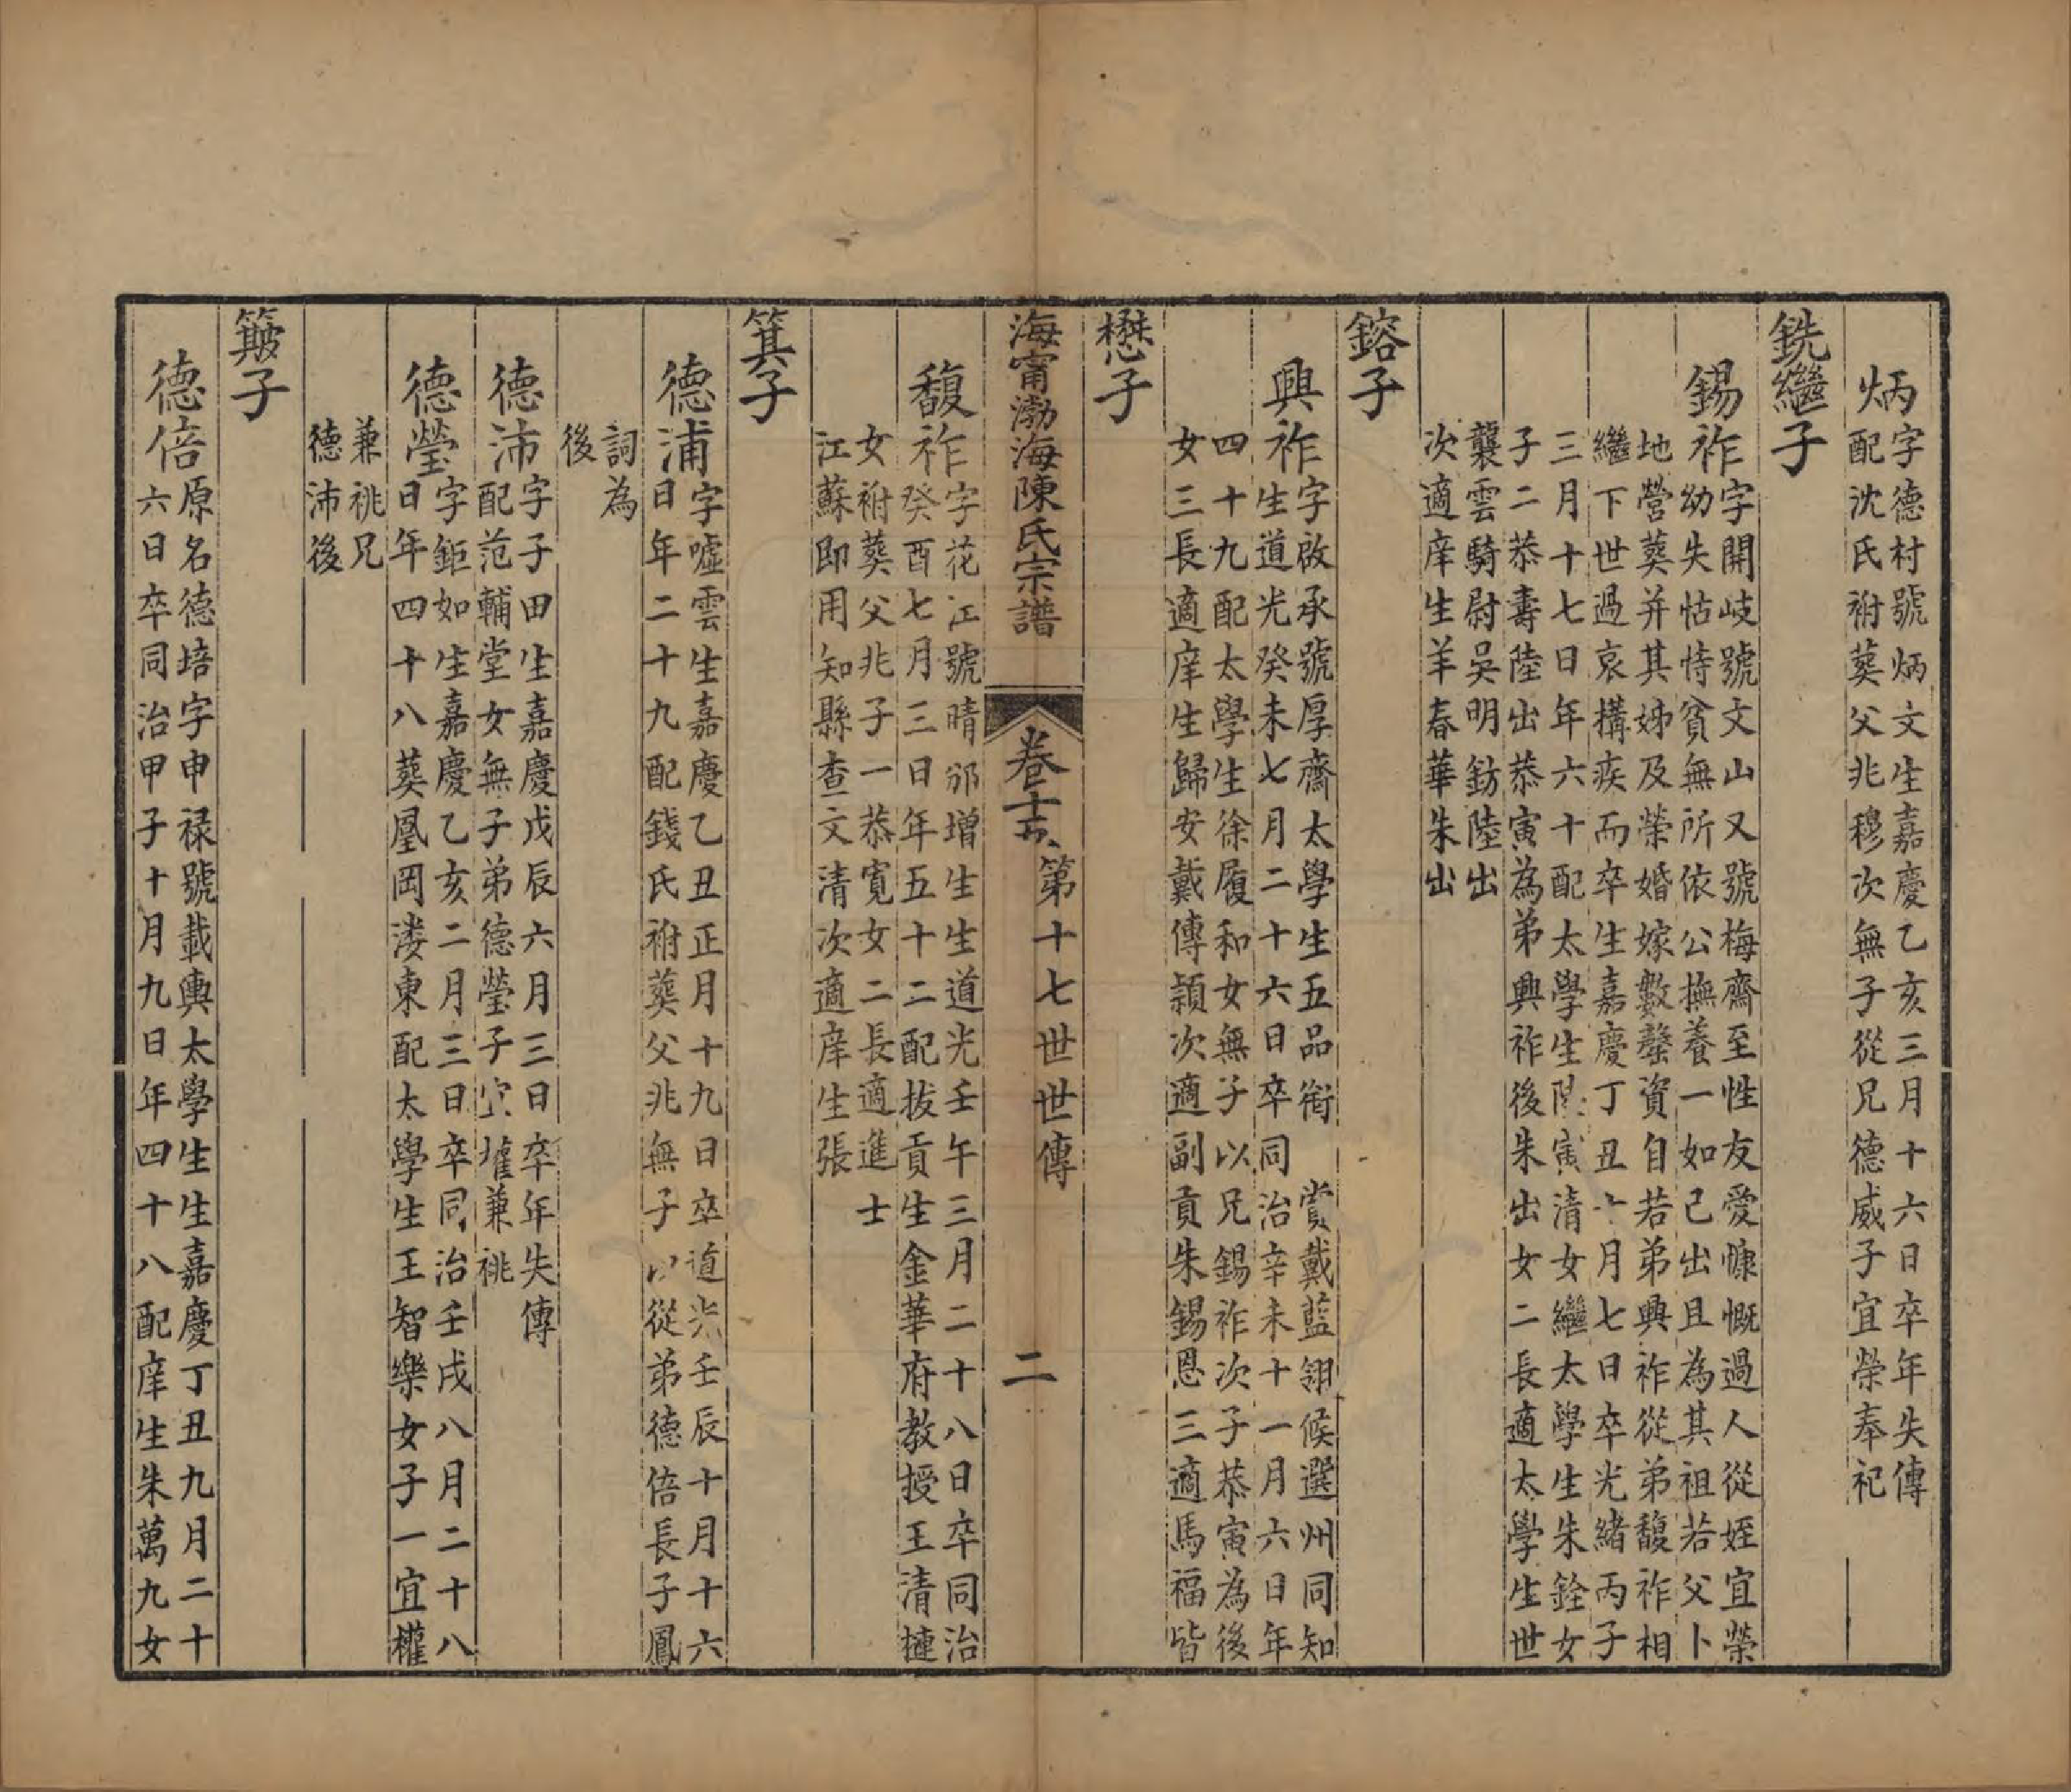 炳
字德村號炳文生嘉慶乙亥三月十六日卒年失傳
配沈氏祔葬父兆穆次無子從兄德威子宜榮奉祀
銑繼子
錫祚
字開岐號文山又號梅齋至性友愛慷慨過人從姪宜榮
幼失怙恃貧無所依公撫養一如己出且為其祖若父卜
地營葬并其姊及榮婚嫁數罄資自若弟興祚從弟馥祚相
繼下世過哀構疾而卒生嘉慶丁丑十月七日卒光緒丙子
三月十七日年六十配太學生陸寅清女繼太學生朱銓女
子二恭壽陸出恭寅為弟興祚後朱出女二長適太學生世
襲雲騎尉吳明鈁陸出
次適庠生羊春華朱出
鎔子
興祚
字啟承號厚齋太學生五品銜　賞戴藍翎候選州同知
生道光癸未七月二十六日卒同治辛未十一月六日年
四十九配太學生徐履和女無子以兄錫祚次子恭寅為後
女三長適庠生歸安戴傳穎次適副貢朱錫恩三適馬福皆
懋子
海甯渤海陳氏宗譜　卷十五　第十七世世傳　二
馥祚
字花江號晴邠增生生道光壬午三月二十八日卒同治
癸酉七月三日年五十二配拔貢生金華府教授王清槤
女祔葬父兆子一恭寬女二長適進士
江蘇即用知縣查文清次適庠生張
箕子
德浦
字噓雲生嘉慶乙丑正月十九日卒道光壬辰十月十六
日年二十九配錢氏祔葬父兆無子以從弟德倍長子鳳
詞為
後
德沛
字子田生嘉慶戊辰六月三日卒年失傳
配范輔堂女無子弟德瑩子宜權兼祧
德瑩
字鉅如生嘉慶乙亥二月三日卒同治壬戌八月二十八
日年四十八葬凰岡漊東配太學生王智樂女子一宜權
兼祧兄
德沛後
簸子
德倍
原名德培字申祿號載輿太學生生嘉慶丁丑九月二十
六日卒同治甲子十月九日年四十八配庠生朱萬九女